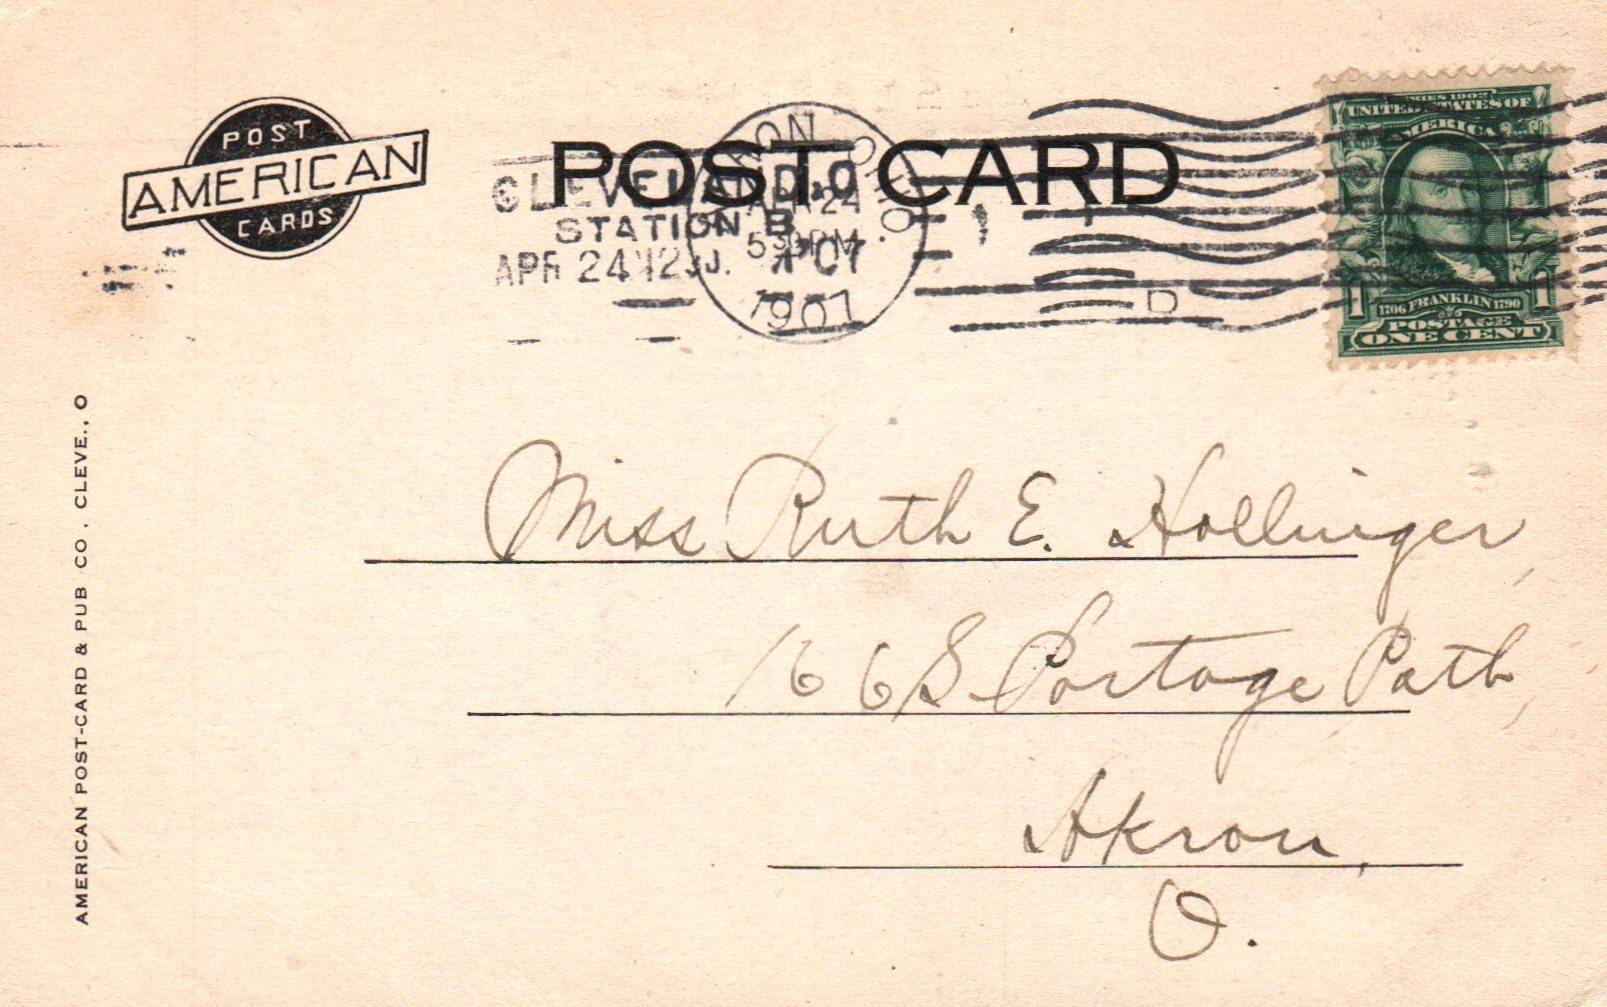 POST
AMERICAN
CARDS
POST CARD
CLEVELAND, O.
STATION B.
APR 24
AKRON OHIO
APR 24
530 PM
1907
SERIES 1902
UNITED STATES OF
AMERICA
1 1
1706 FRANKLIN 1790
POSTAGE
ONE CENT
D
Miss Ruth E. Hollinger,
16 6 S Portage Path,
Akron,
O.
AMERICAN POST-CARD & PUB CO., CLEVE., O